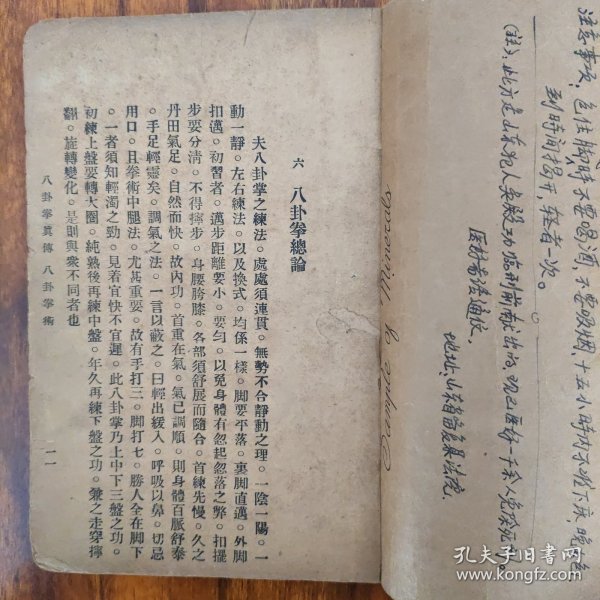 六 八卦拳總論
夫八卦掌之練法。處處須連貫。無勢不合靜動之理。一陰一陽。一
動一靜。左右練法。以及換式。均係一樣。脚要平落。裏脚直邁。外脚
扣邁。初習者。邁步距離要小。要勻。以免身體有忽起忽落之弊。扣擺
步要分清。不得摔步。身腰胯膝。各部須舒展而隨合。首練先慢。久之
丹田氣足。自然而快。故內功。首重在氣。氣已調順。則身體百脈舒泰
。手足輕靈矣。調氣之法。一言以蔽之。曰輕出緩入。呼吸以鼻。切忌
用口。且拳術中腿法。尤甚重要。故有手打三。脚打七。勝人全在脚下
。一者須知輕濁之勁。見着宜快不宜遲。此八卦掌乃上中下三盤之功。
初練上盤要轉大圈。純熟後再練中盤。年久再練下盤之功。兼之走穿擰
翻。旋轉變化。是則與衆不同者也
八卦拳眞傳 八卦拳術 一一
注意事项：包住脚时不要喝酒，不要吸烟，十五小时内不能下床，晚包
到时间揭开，轻者一次。
(註)：此方是山东犯人
献出的，现已医好一千余人
医好者请通
地址：山东省